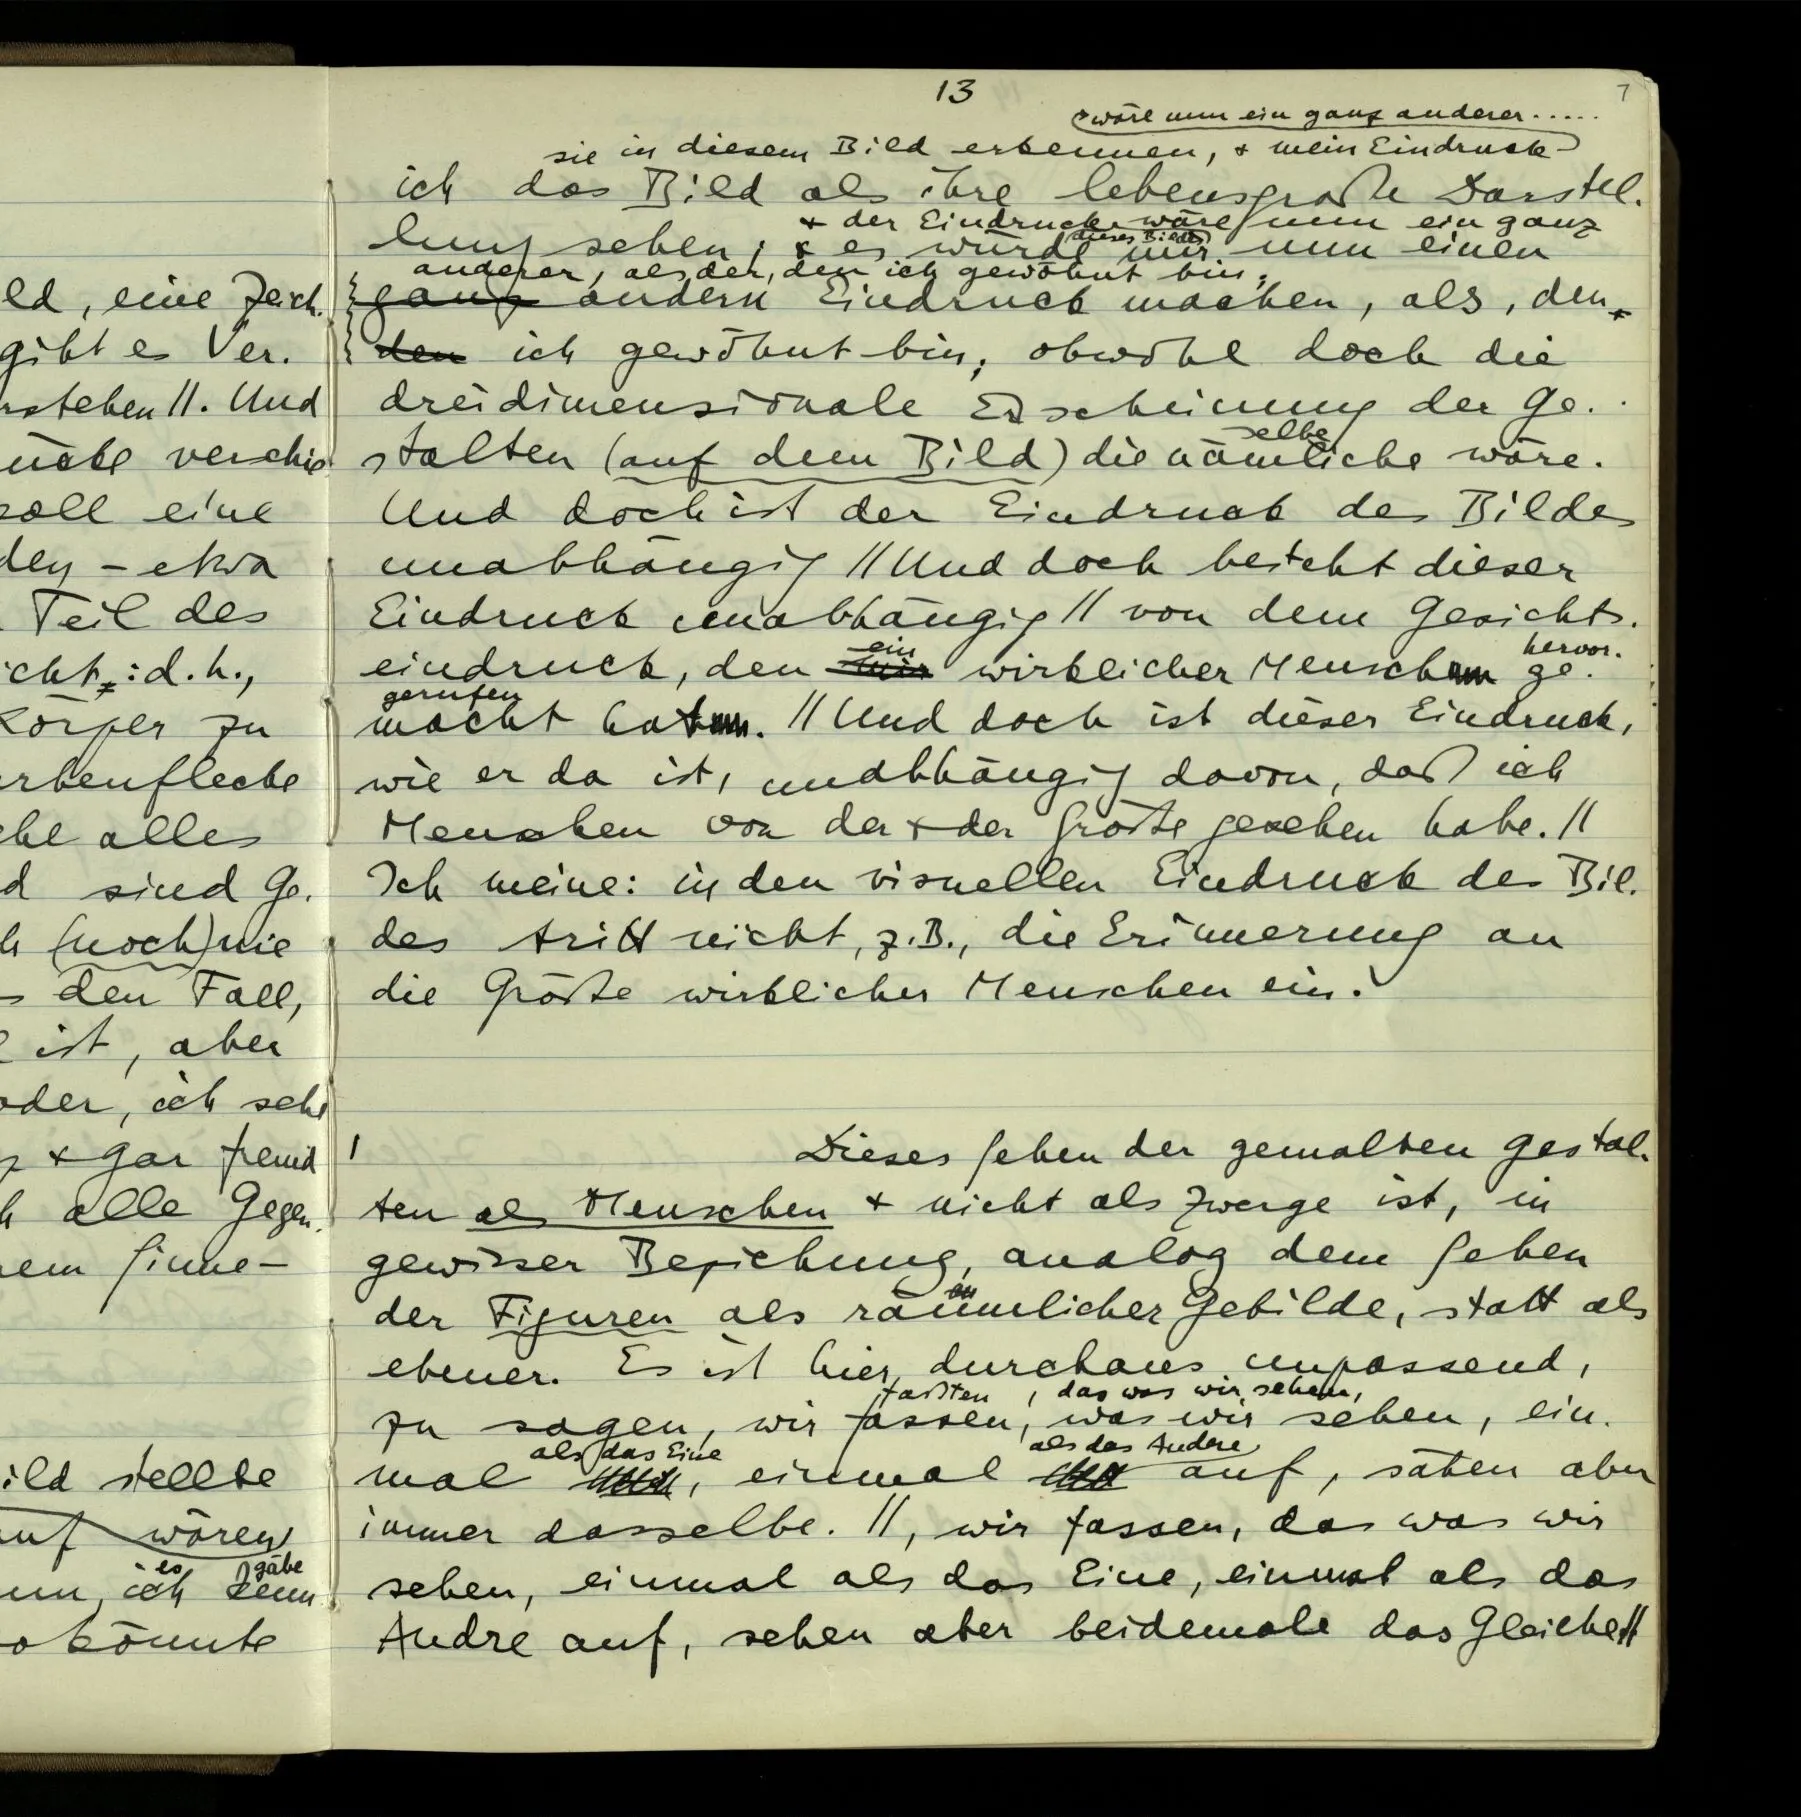 13
7
wäre nun ein ganz anderer.....
sie in diesem Bild erkennen, + mein Eindruck
ich das Bild als ihre lebensgroße Darstel-
+ der Eindruck wäre nun ein ganz
lung sehen; + es würde mir nun einen
dieses Bildes
anderer, als der, den ich gewöhnt bin;
ganz andern Eindruck machen, als, den
den ich gewöhnt bin; obwohl doch die
dreidimensionale Erscheinung der Ge-
selbe
stalten (auf dem Bild) die nämliche wäre.
Und doch ist der Eindruck des Bildes
unabhängig // Und doch besteht dieser
Eindruck unabhängig // von dem Gesichts-
ein hervor-
eindruck, den mir wirklicher Mensch ge-
gerufen
macht hat. // Und doch ist dieser Eindruck,
wie er da ist, unabhängig davon, daß ich
Menschen von der + der Größe gesehen habe. //
Ich meine: in den visuellen Eindruck des Bil-
des tritt nicht, z.B., die Erinnerung an
die Größe wirklicher Menschen ein.
/ Dieses Sehen der gemalten Gestal-
ten als Menschen + nicht als Zwerge ist, in
gewisser Beziehung, analog dem Sehen
der Figuren als räumlicher Gebilde, statt als
ebener. Es ist hier durchaus unpassend,
faßten, das was wir sehen,
zu sagen, wir fassen, was wir sehen, ein-
als das Eine als das Andere
mal , einmal auf, sähen aber
immer dasselbe. //, wir fassen, das was wir
sehen, einmal als das Eine, einmal als das
Andre auf, sehen aber beidemale das Gleiche //
ld, eine Zeich-
gibt es Ver-
rstehen //. Und
ücke verschie
soll eine
den – etwa
Teil des
icht: d.h.,
Körper zu
rbenflecke
ehe alles
d sind Ge-
h (noch) nie
s den Fall,
ist, aber
oder, ich sehe
+ gar fremd
h alle Gegen-
nem Sinne –
ild stellte
auf wären
es gäbe
nn, ich kenn
o könnte